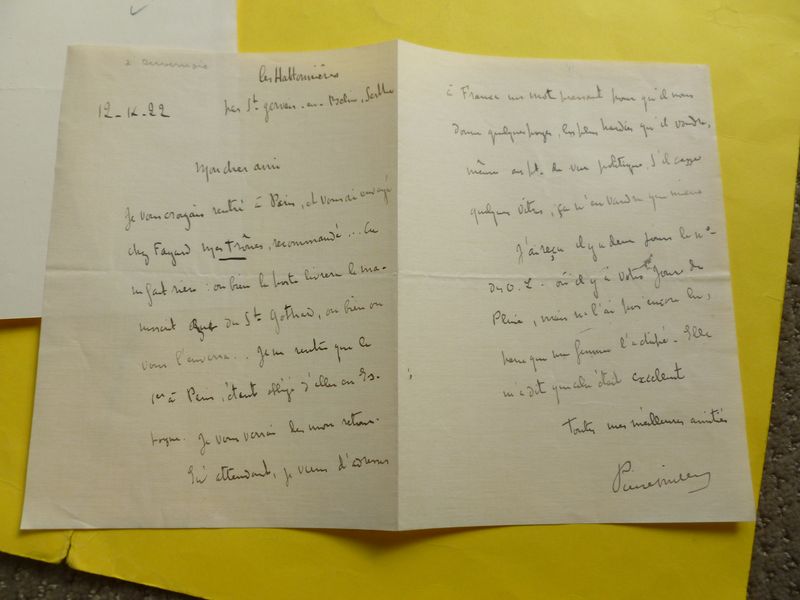 à Duvernois
Les Hattonnières
12-IX-22 par St Gervais-en-Belin, Sarthe
Mon cher ami
Je vous croyais rentré à Paris, et vous ai envoyé
chez Fayard mes Trônes, recommandé... Ça
ne fait rien : ou bien le poste livrera le ma-
nuscrit du St Gothard, ou bien on
vous l'enverra.. Je ne rentre que le
1er à Paris, étant obligé d'aller en Es-
pagne. Je vous verrai dès mon retour.
En attendant, je viens d'adresser
à France un mot pressant pour qu'il nous
donne quelques pages, les plus hardies qu'il voudra,
même au pt. de vue politique. S'il casse
quelques vitres, ça n'en vaudra que mieux
J'ai reçu il y a deux jours le no
des O. L. où il y a votre Jours de
Pluie, mais ne l'ai pas encore lu,
parce que ma femme l'a chipé. Elle
m'a dit que cela était excellent
Toutes mes meilleures amitiés